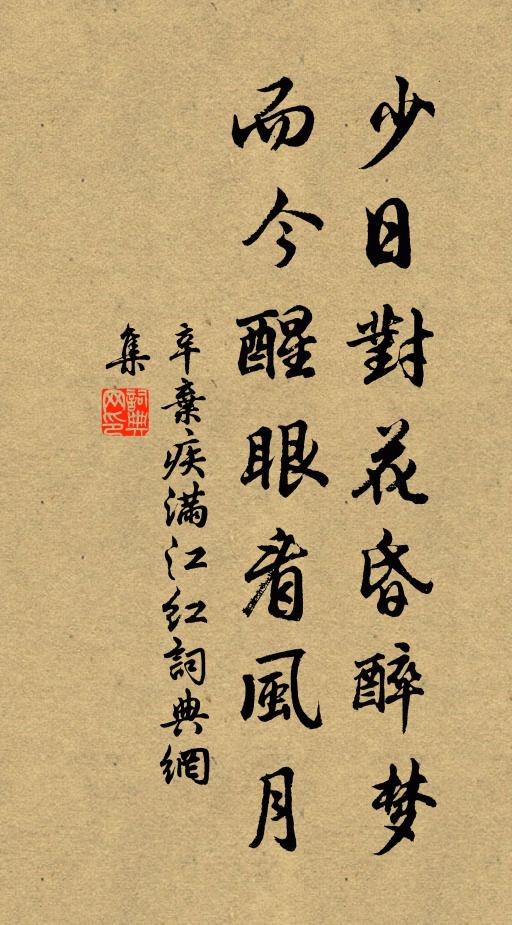 少日對花昏醉梦
而今醒眼看風月
辛棄疾满江红詞典網
集
詞典
网印